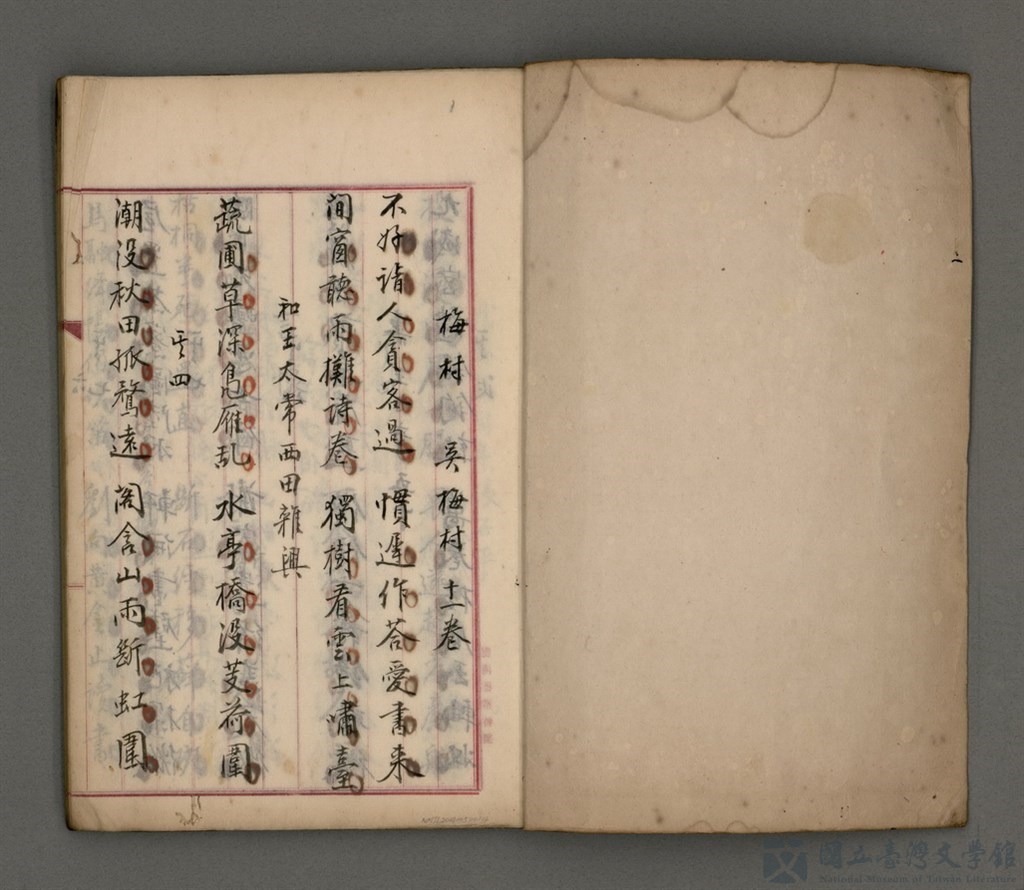 梅村 吳梅村 十一卷
不好詣人貪客過 慣遲作答愛書來
閒窗聽雨攤詩卷 獨樹看雲上嘯臺
和王太常西田雜興
蔬圃草深鳧雁乱 水亭橋没芰荷圍
其四
潮没秋田孤鶩遠 閣含山雨斷虹圍
國立臺灣文學館
National Museum of Taiwan Literature